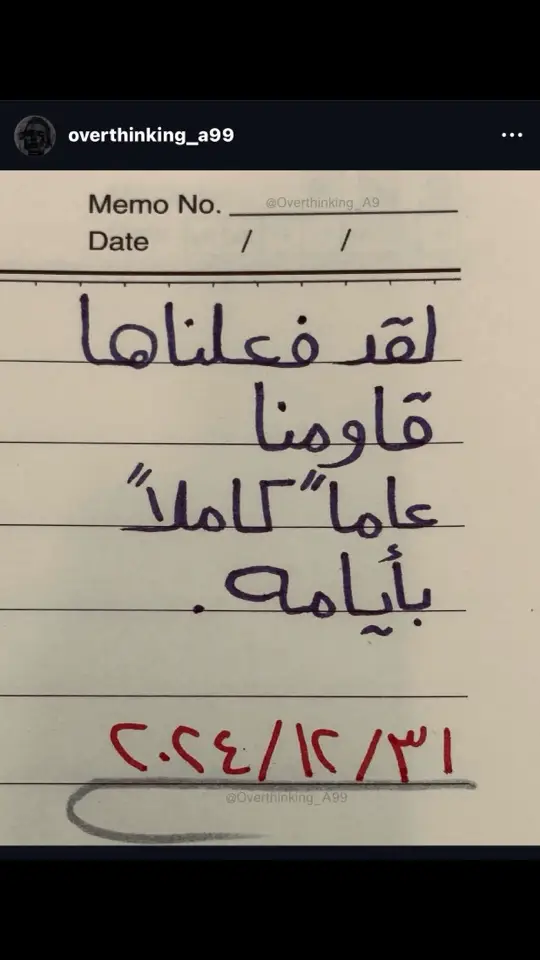 overthinking_a99
Memo No. @Overthinking_A9
Date / /
لقد فعلناها
قاومنا
عاماً كاملاً
بأيامه .
٣١/١٢/٢٠٢٤
@Overthinking_A99